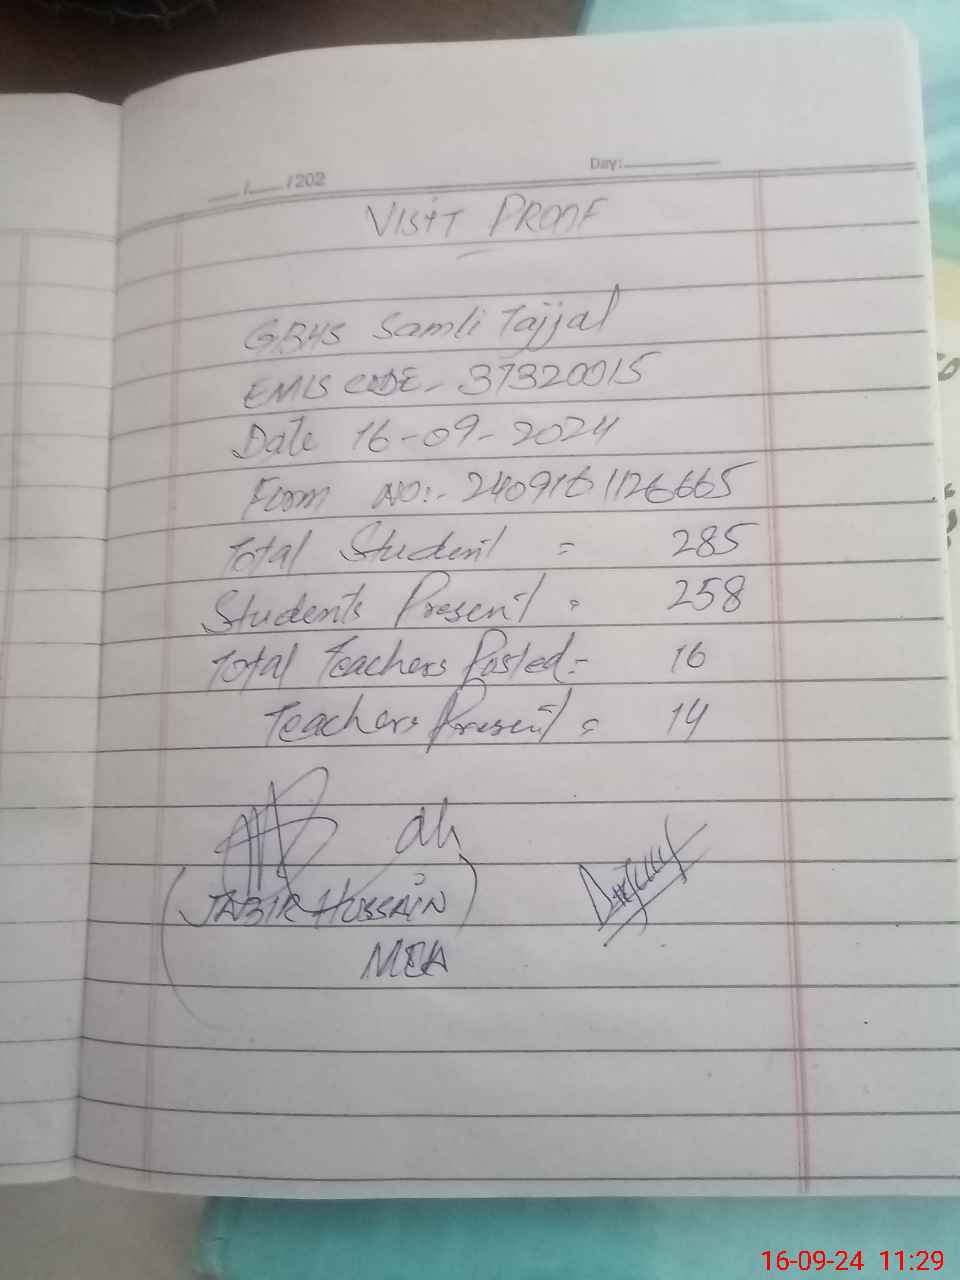 / /202
Day:
VISIT PROOF
GBHS Samli Tajjal
EMIS CODE- 37320015
Date 16-09-2024
Form NO:- 2409161126665
Total Student = 285
Students Present = 258
Total Teachers Posted= 16
Teachers Present = 14
(JABIR HUSSAIN)
MEA
16-09-24 11:29